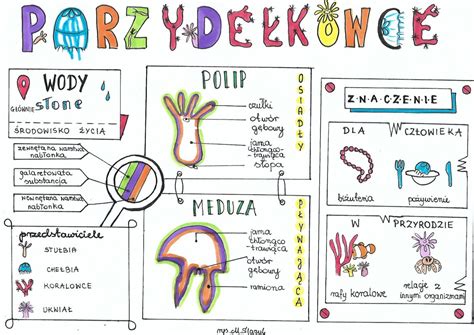 PARZYDEŁKOWCE
WODY
GŁÓWNIE słone
ŚRODOWISKO ŻYCIA
zewnętrzna warstwa
nabłonka
galaretowata
substancja
wewnętrzna warstwa
nabłonka
przedstawiciele
STUŁBIA
CHEŁBIA
KORALOWCE
UKWIAŁ
POLIP
OSIADŁY
czułki
otwór
gębowy
jama
chłonąco-
trawiąca
stopa
MEDUZA
PŁYWAJĄCA
jama
chłonąco-
trawiąca
otwór
gębowy
ramiona
ZNACZENIE
DLA CZŁOWIEKA
biżuteria
pożywienie
W PRZYRODZIE
rafy koralowe
relacje z
innymi organizmami